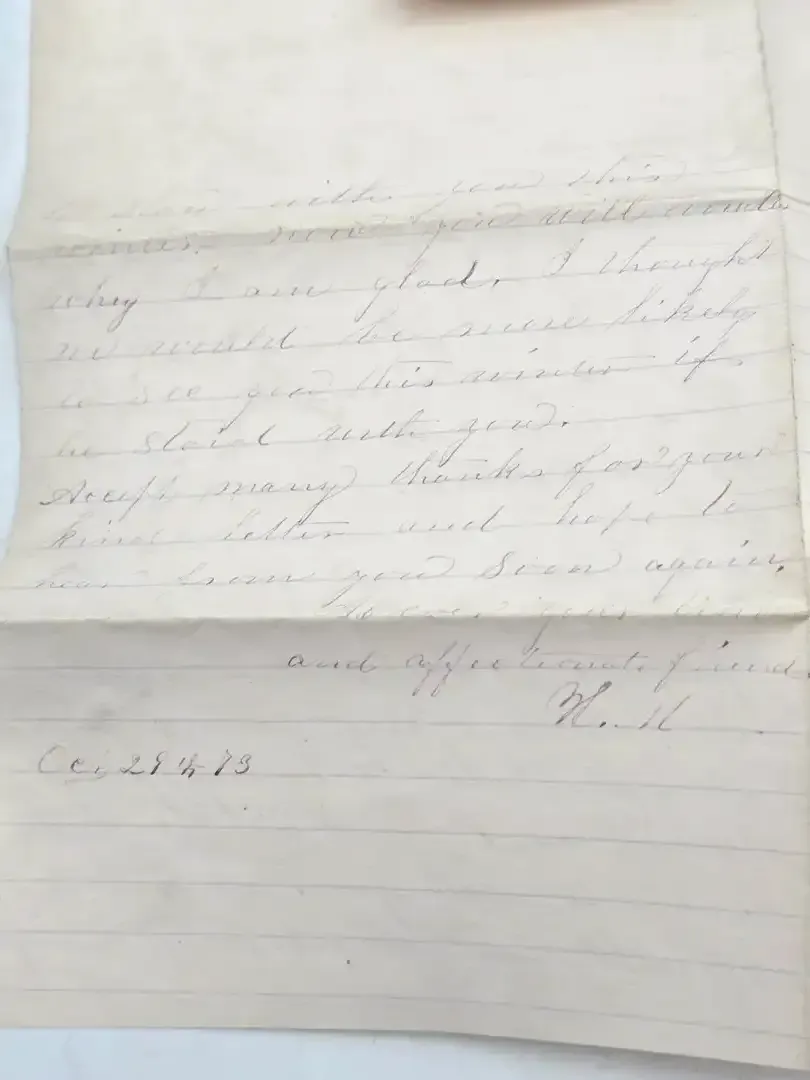 with you this
winter. now you will wonder
why I am glad. I thought
we would be more likely
to see you this winter if
he staid with you.
Accept many thanks for your
kind letter and hope to
hear from you soon again.
As ever your
and affectionate friend
H. H
29th 73